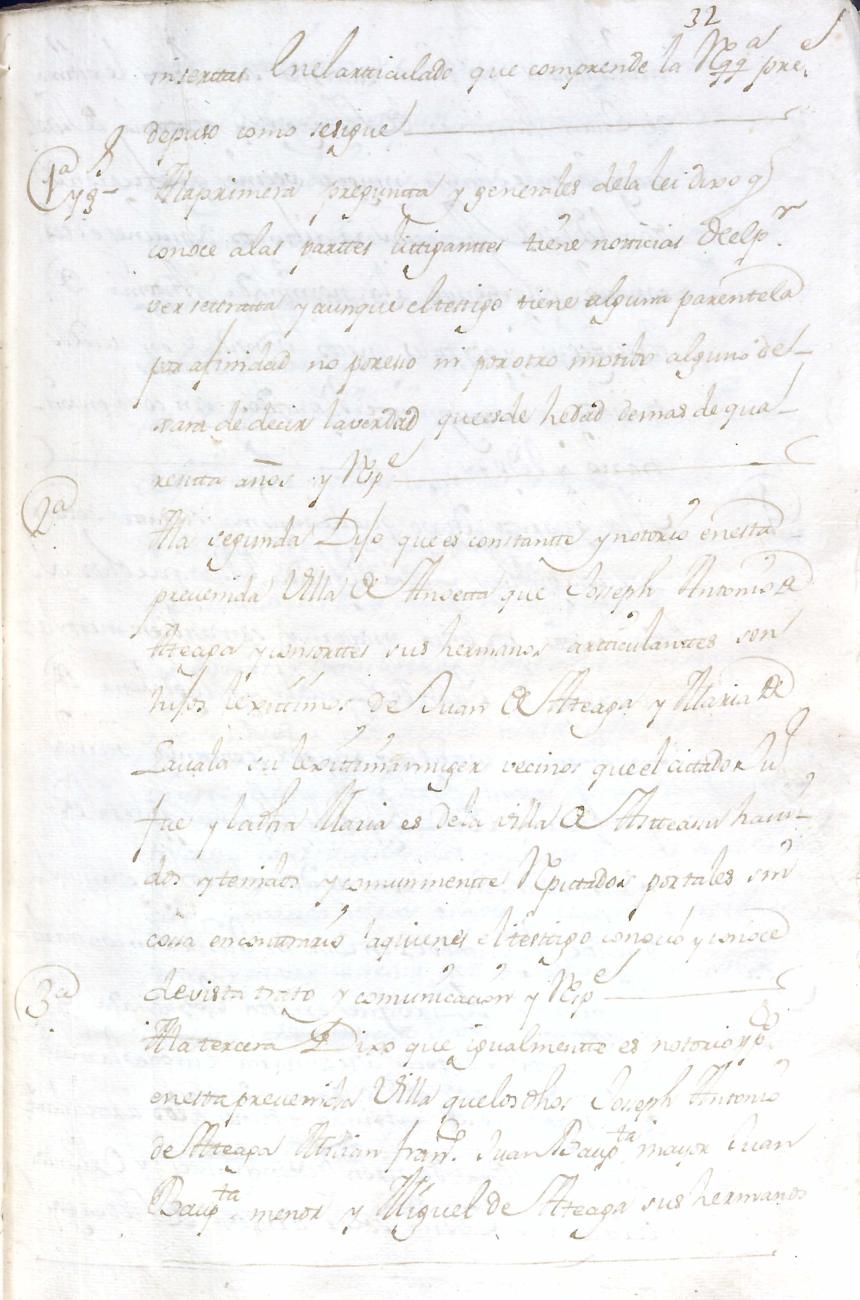 32
insertas En el articulado que comprende la pre.
depuso como sesigue
1ª y gs
Ala primera pregunta y generales dela lei dixo q
conoce alas parttes littiganttes tiene notticias Deelp.
ver settratta y aunque el testigo tiene alguna parentela
por afinidad no poresso ni por otro motibo alguno de-
xara de decir la verdad que es de hedad demas de qua-
rentta años y Rpe
2ª
Ala segunda Dijo que es constantte y notorio enesta
preuenida Villa de Anoetta que Joseph Antonio de
Atteaga y consorttes sus hermanos artticulanttes son
hijos lexittimos de Juan de Atteaga y Maria de
Zauala su lexittima muger vecinos que el cittado Ju
fue y la dha Maria es dela villa de Astteasu haui-
dos y tenidos y comunmentte Rputtados por tales sin
cosa en conttrario aquienes el testigo conocio y conoce
de vista trato y comunicacion y Rpe
3ª
Ala tercera Dixo que igualmentte es notorio y po.
enesta preuenida Villa que los dhos Joseph Antonio
de Atteaga Millan Franco. Juan Bauptta mayor Juan
Bauptta menor y Miguel de Atteaga sus hermanos